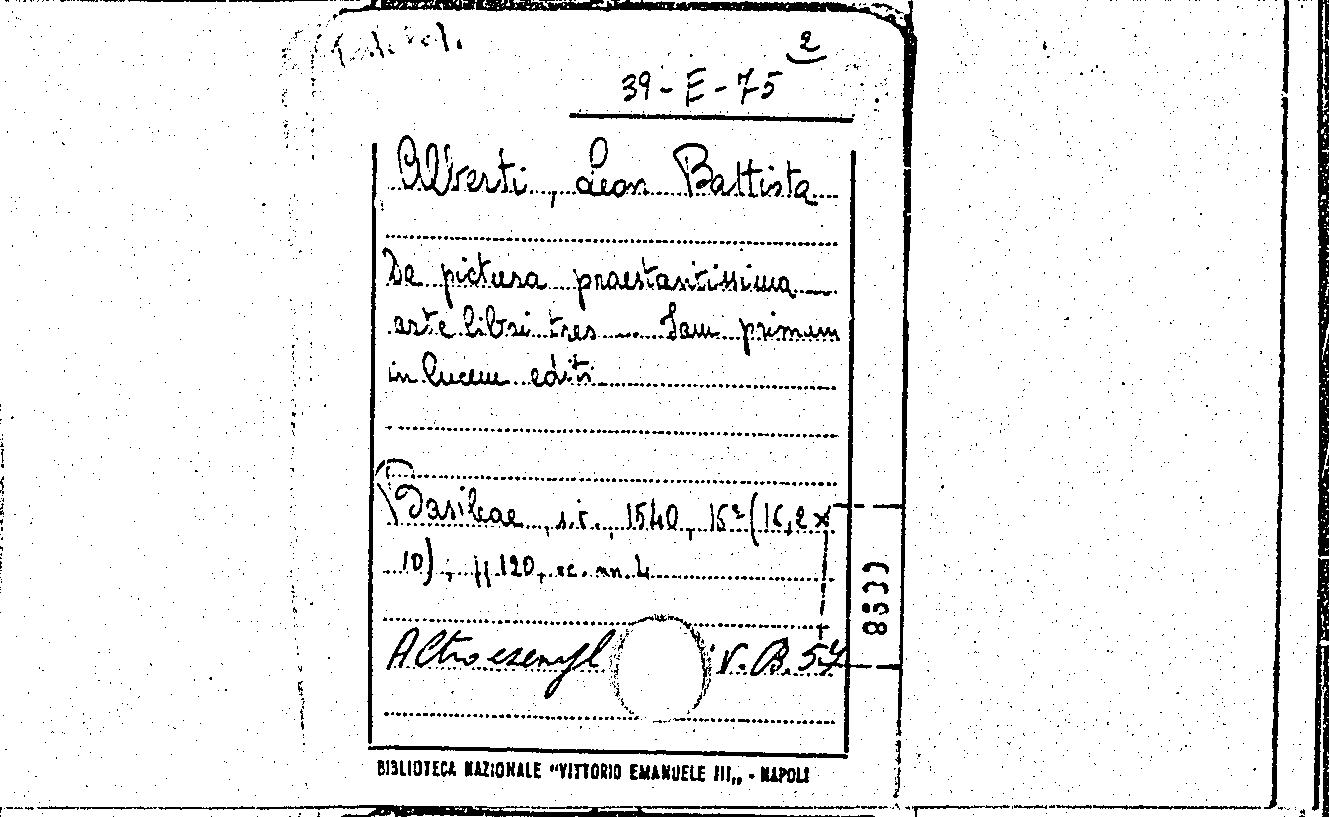 2
39-E-75
Alberti, Leon Battista
De pictura praestantissima
arte libri tres... Iam primum
in lucem editi
Basileae, s.t., 1540, 16º (16,2 x
10); ff 120, sc. nn. 4
8800
Altro esempl V.B.57
BIBLIOTECA NAZIONALE "VITTORIO EMANUELE III„ - NAPOLI